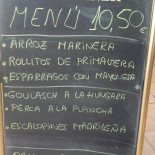 MENÚ 10,50€
• ARROZ MARINERA
• ROLLITOS DE PRIMAVERA
• ESPARRAGOS CON MAYONESA
• GOULASCH A LA HUNGARA
• PERCA A LA PLANCHA
• ESCALOPINES MADRILEÑA